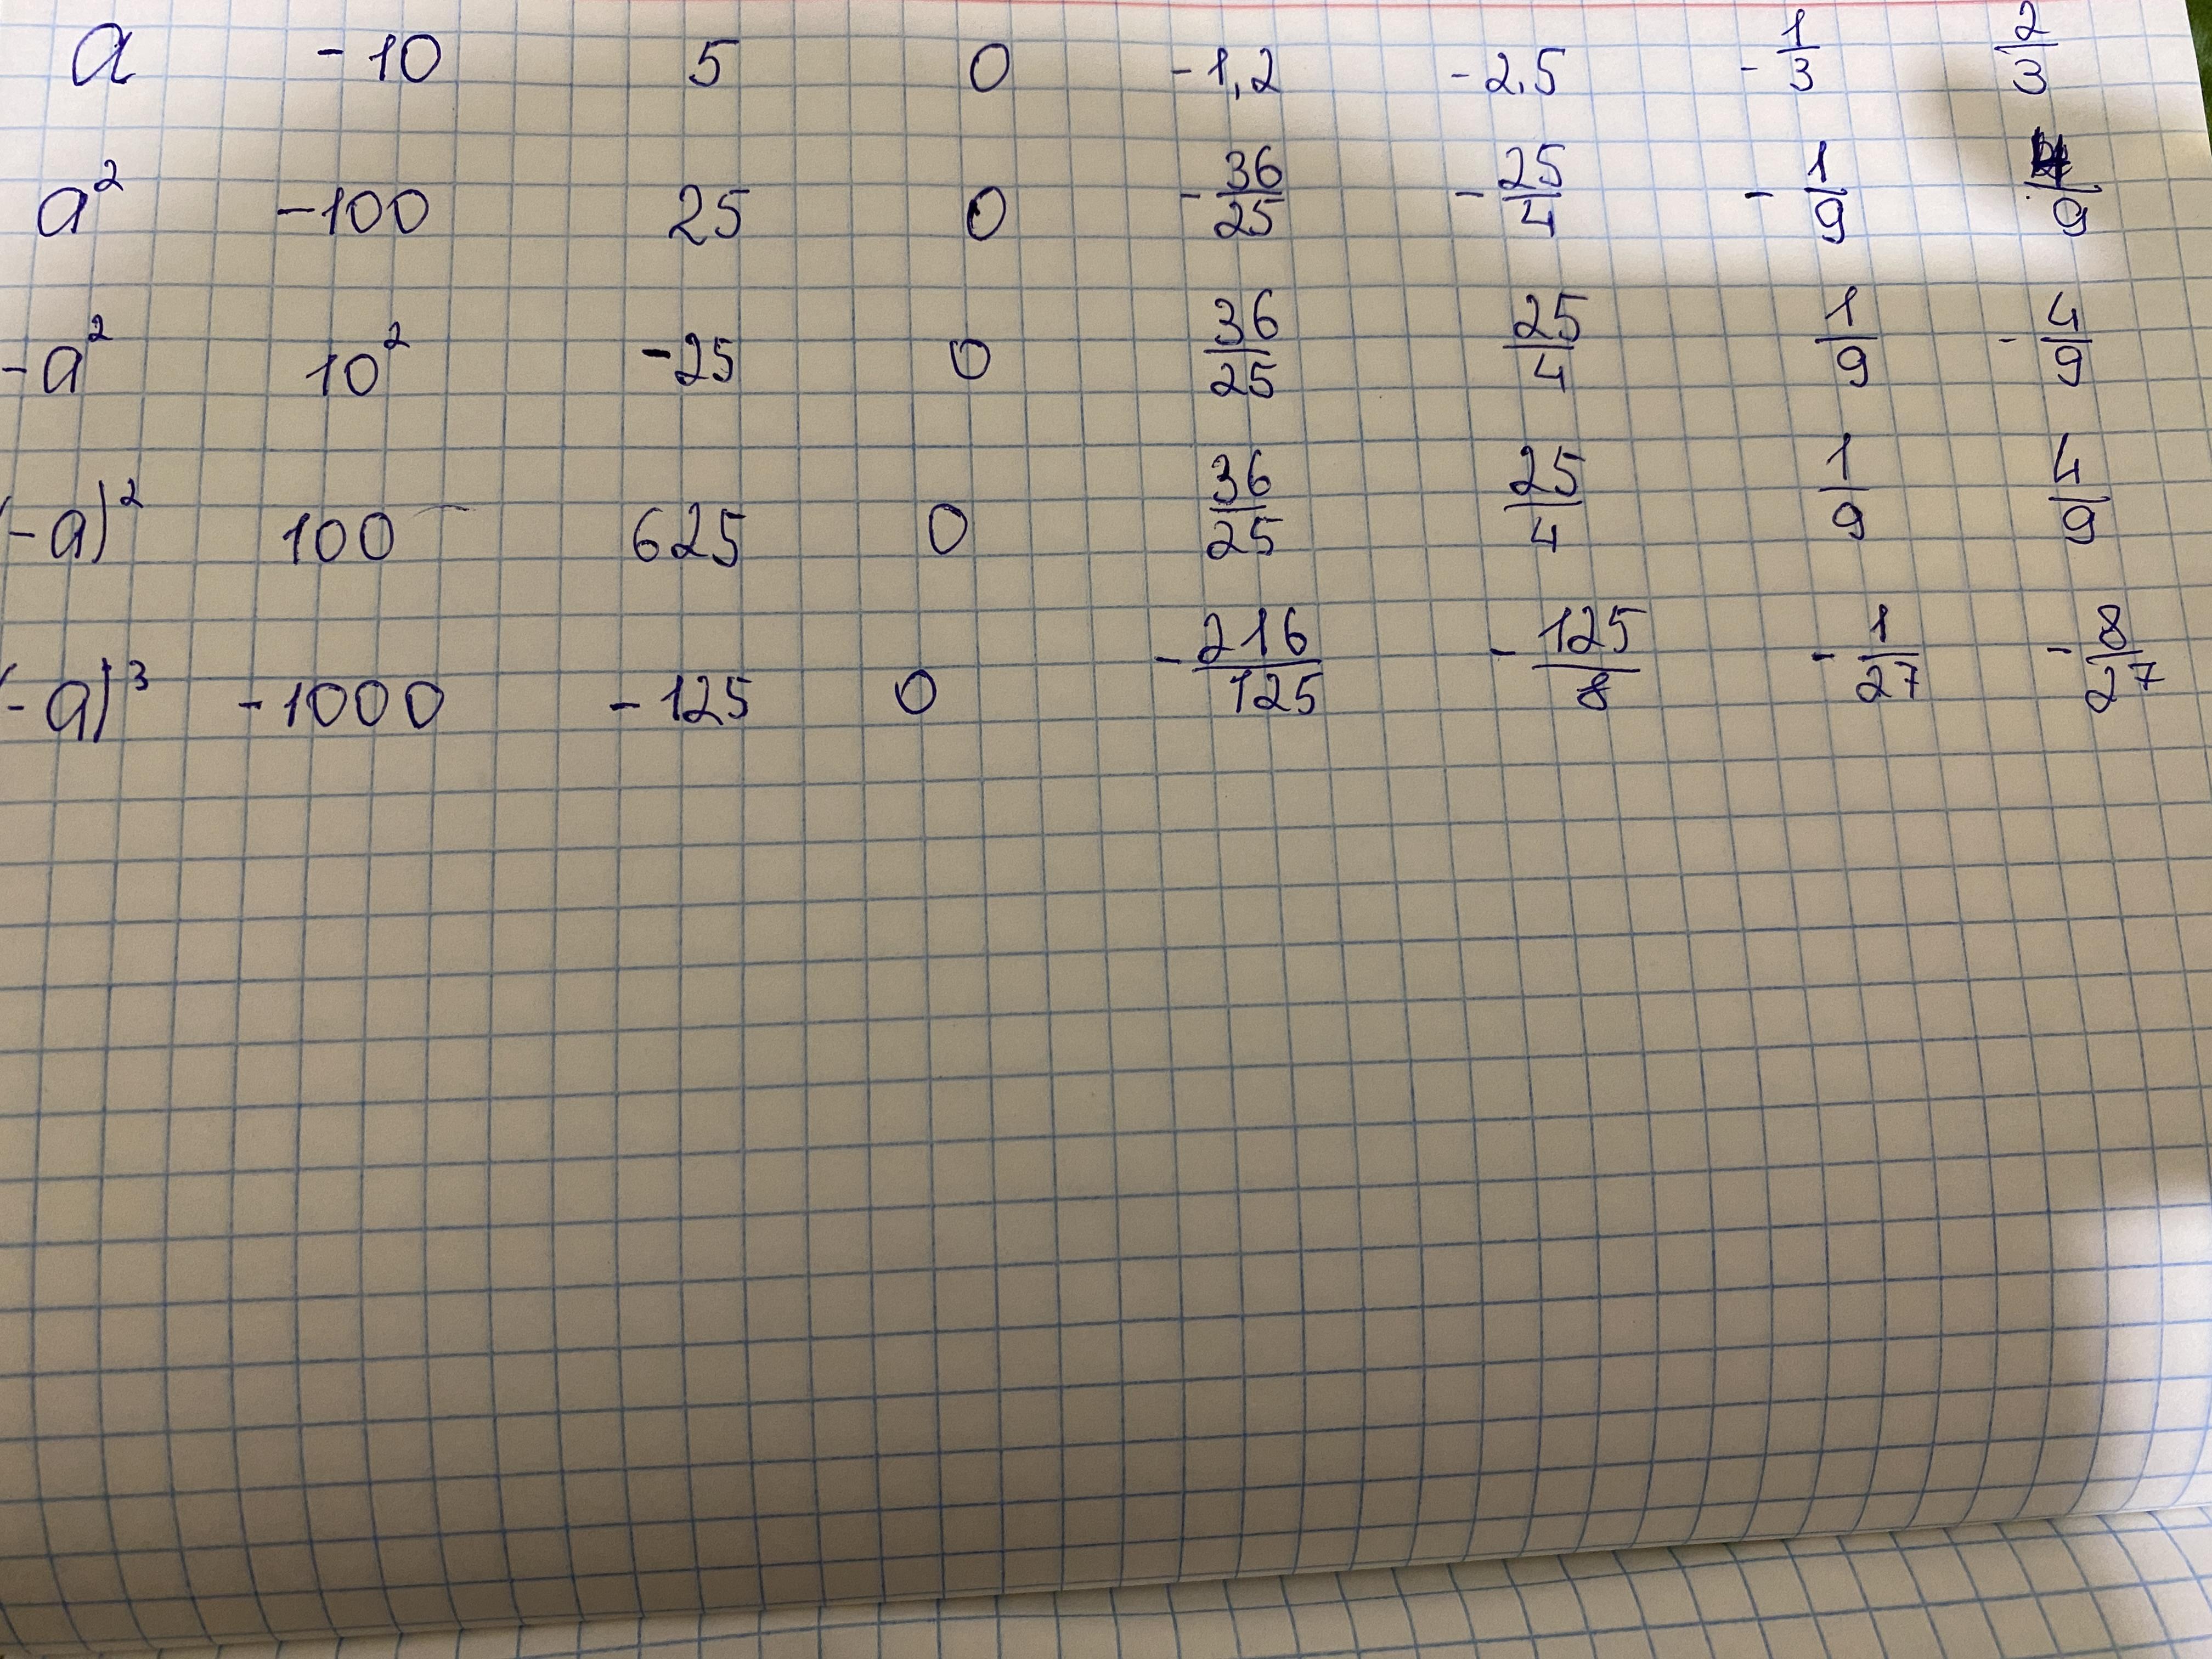 a -10 5 0 -1,2 -2,5 -1/3 2/3
a² -100 25 0 -36/25 -25/4 -1/9 4/9
-a² 10² -25 0 36/25 25/4 1/9 -4/9
(-a)² 100 625 0 36/25 25/4 1/9 4/9
(-a)³ -1000 -125 0 -216/125 -125/8 -1/27 -8/27